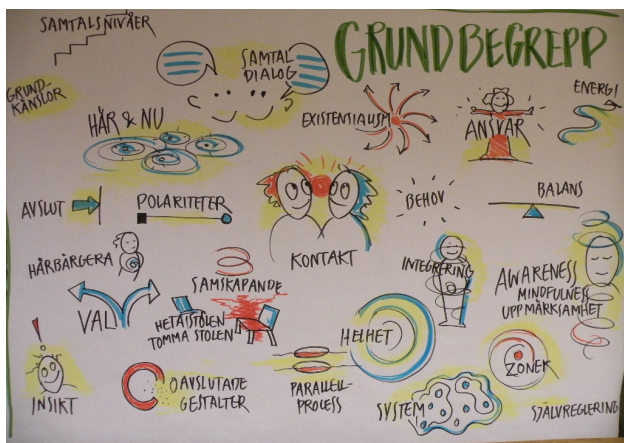 SAMTALSNIVÅER
GRUNDBEGREPP
SAMTAL
DIALOG
GRUND-
KÄNSLOR
HÄR & NU
EXISTENTIALISM
ANSVAR
ENERGI
AVSLUT
POLARITETER
KONTAKT
BEHOV
BALANS
HÄRBÄRGERA
SAMSKAPANDE
INTEGRERING
AWARENESS
MINDFULNESS
UPPMÄRKSAMHET
VAL
HETA STOLEN
TOMMA STOLEN
HELHET
ZONER
INSIKT
OAVSLUTADE
GESTALTER
PARALLELL-
PROCESS
SYSTEM
SJÄLVREGLERING